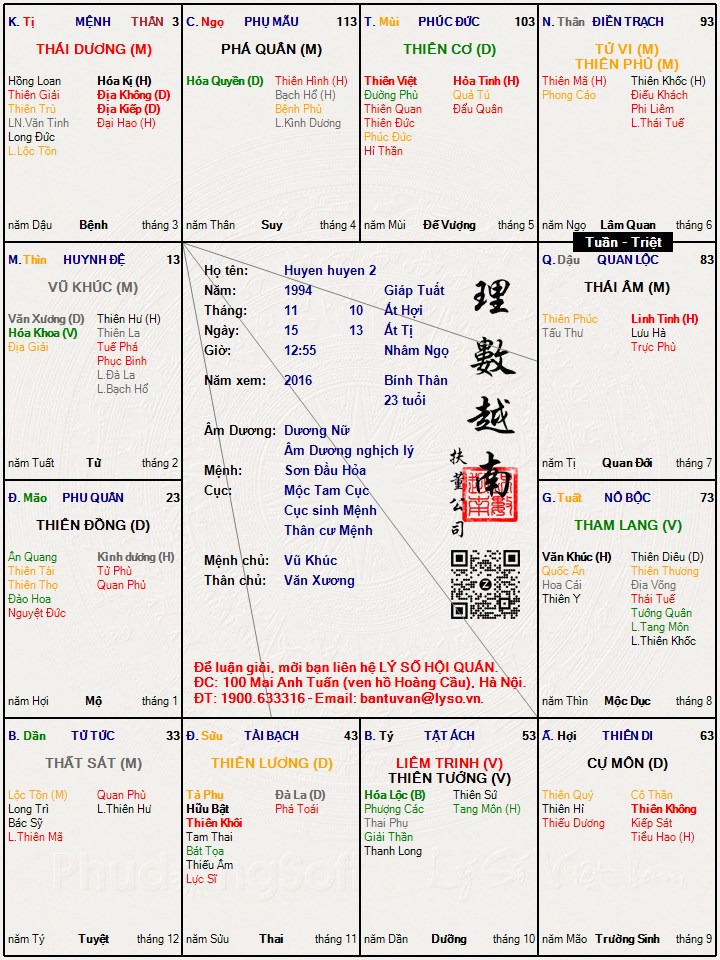 K. Tị MỆNH THÂN 3
THÁI DƯƠNG (M)
Hồng Loan Hóa Kị (H)
Thiên Giải Địa Không (D)
Thiên Trù Địa Kiếp (D)
LN.Văn Tinh Đại Hao (H)
Long Đức
L.Lộc Tồn
năm Dậu Bệnh tháng 3
C. Ngọ PHỤ MẪU 113
PHÁ QUÂN (M)
Hóa Quyền (D) Thiên Hình (H)
Bạch Hổ (H)
Bệnh Phù
L.Kình Dương
năm Thân Suy tháng 4
T. Mùi PHÚC ĐỨC 103
THIÊN CƠ (D)
Thiên Việt Hỏa Tinh (H)
Đường Phù Quả Tú
Thiên Quan Đẩu Quân
Thiên Đức
Phúc Đức
Hỉ Thần
năm Mùi Đế Vượng tháng 5
N. Thân ĐIỀN TRẠCH 93
TỬ VI (M)
THIÊN PHỦ (M)
Thiên Mã (H) Thiên Khốc (H)
Phong Cáo Điếu Khách
Phi Liêm
L.Thái Tuế
năm Ngọ Lâm Quan tháng 6
Tuần - Triệt
M. Thìn HUYNH ĐỆ 13
VŨ KHÚC (M)
Văn Xương (D) Thiên Hư (H)
Hóa Khoa (V) Thiên La
Địa Giải Tuế Phá
Phục Binh
L.Đà La
L.Bạch Hổ
năm Tuất Tử tháng 2
Họ tên: Huyen huyen 2
Năm: 1994 Giáp Tuất
Tháng: 11 10 Ất Hợi
Ngày: 15 13 Ất Tị
Giờ: 12:55 Nhâm Ngọ
Năm xem: 2016 Bính Thân
23 tuổi
Âm Dương: Dương Nữ
Âm Dương nghịch lý
Mệnh: Sơn Đầu Hỏa
Cục: Mộc Tam Cục
Cục sinh Mệnh
Thân cư Mệnh
Mệnh chủ: Vũ Khúc
Thân chủ: Văn Xương
理數越南
扶董公司
Để luận giải, mời bạn liên hệ LÝ SỐ HỘI QUÁN.
ĐC: 100 Mai Anh Tuấn (ven hồ Hoàng Cầu), Hà Nội.
ĐT: 1900.633316 - Email: bantuvan@lyso.vn.
Q. Dậu QUAN LỘC 83
THÁI ÂM (M)
Thiên Phúc Linh Tinh (H)
Tấu Thư Lưu Hà
Trực Phù
năm Tị Quan Đới tháng 7
Đ. Mão PHU QUÂN 23
THIÊN ĐỒNG (D)
Ân Quang Kình dương (H)
Thiên Tài Tử Phù
Thiên Thọ Quan Phủ
Đào Hoa
Nguyệt Đức
năm Hợi Mộ tháng 1
G. Tuất NÔ BỘC 73
THAM LANG (V)
Văn Khúc (H) Thiên Diêu (D)
Quốc Ấn Thiên Thương
Hoa Cái Địa Võng
Thiên Y Thái Tuế
Tướng Quân
L.Tang Môn
L.Thiên Khốc
năm Thìn Mộc Dục tháng 8
B. Dần TỬ TỨC 33
THẤT SÁT (M)
Lộc Tồn (M) Quan Phù
Long Trì L.Thiên Hư
Bác Sỹ
L.Thiên Mã
năm Tý Tuyệt tháng 12
Đ. Sửu TÀI BẠCH 43
THIÊN LƯƠNG (D)
Tả Phụ Đà La (D)
Hữu Bật Phá Toái
Thiên Khôi
Tam Thai
Bát Tọa
Thiếu Âm
Lực Sĩ
năm Sửu Thai tháng 11
B. Tý TẬT ÁCH 53
LIÊM TRINH (V)
THIÊN TƯỚNG (V)
Hóa Lộc (B) Thiên Sứ
Phượng Các Tang Môn (H)
Thai Phụ
Giải Thần
Thanh Long
năm Dần Dưỡng tháng 10
Ấ. Hợi THIÊN DI 63
CỰ MÔN (D)
Thiên Quý Cô Thần
Thiên Hỉ Thiên Không
Thiếu Dương Kiếp Sát
Tiểu Hao (H)
năm Mão Trường Sinh tháng 9